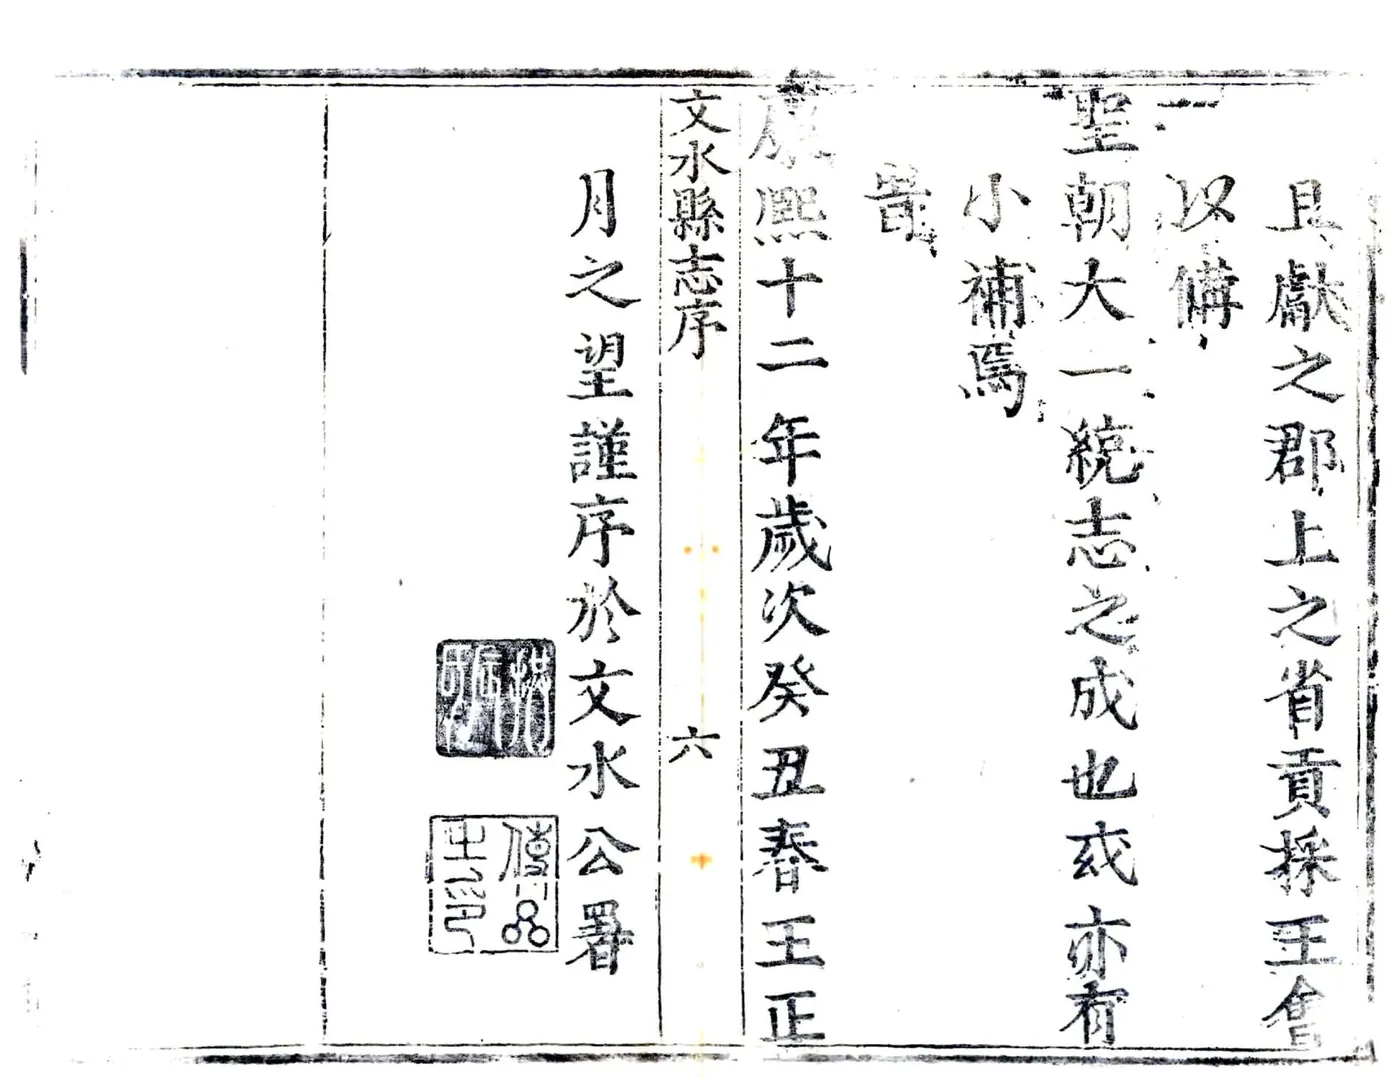 且獻之郡上之省貢採王會
以備
聖朝大一統志之成也或亦有
小補焉
旹
康熙十二年歲次癸丑春王正
文水縣志序
六
月之望謹序於文水公署
傅星之印